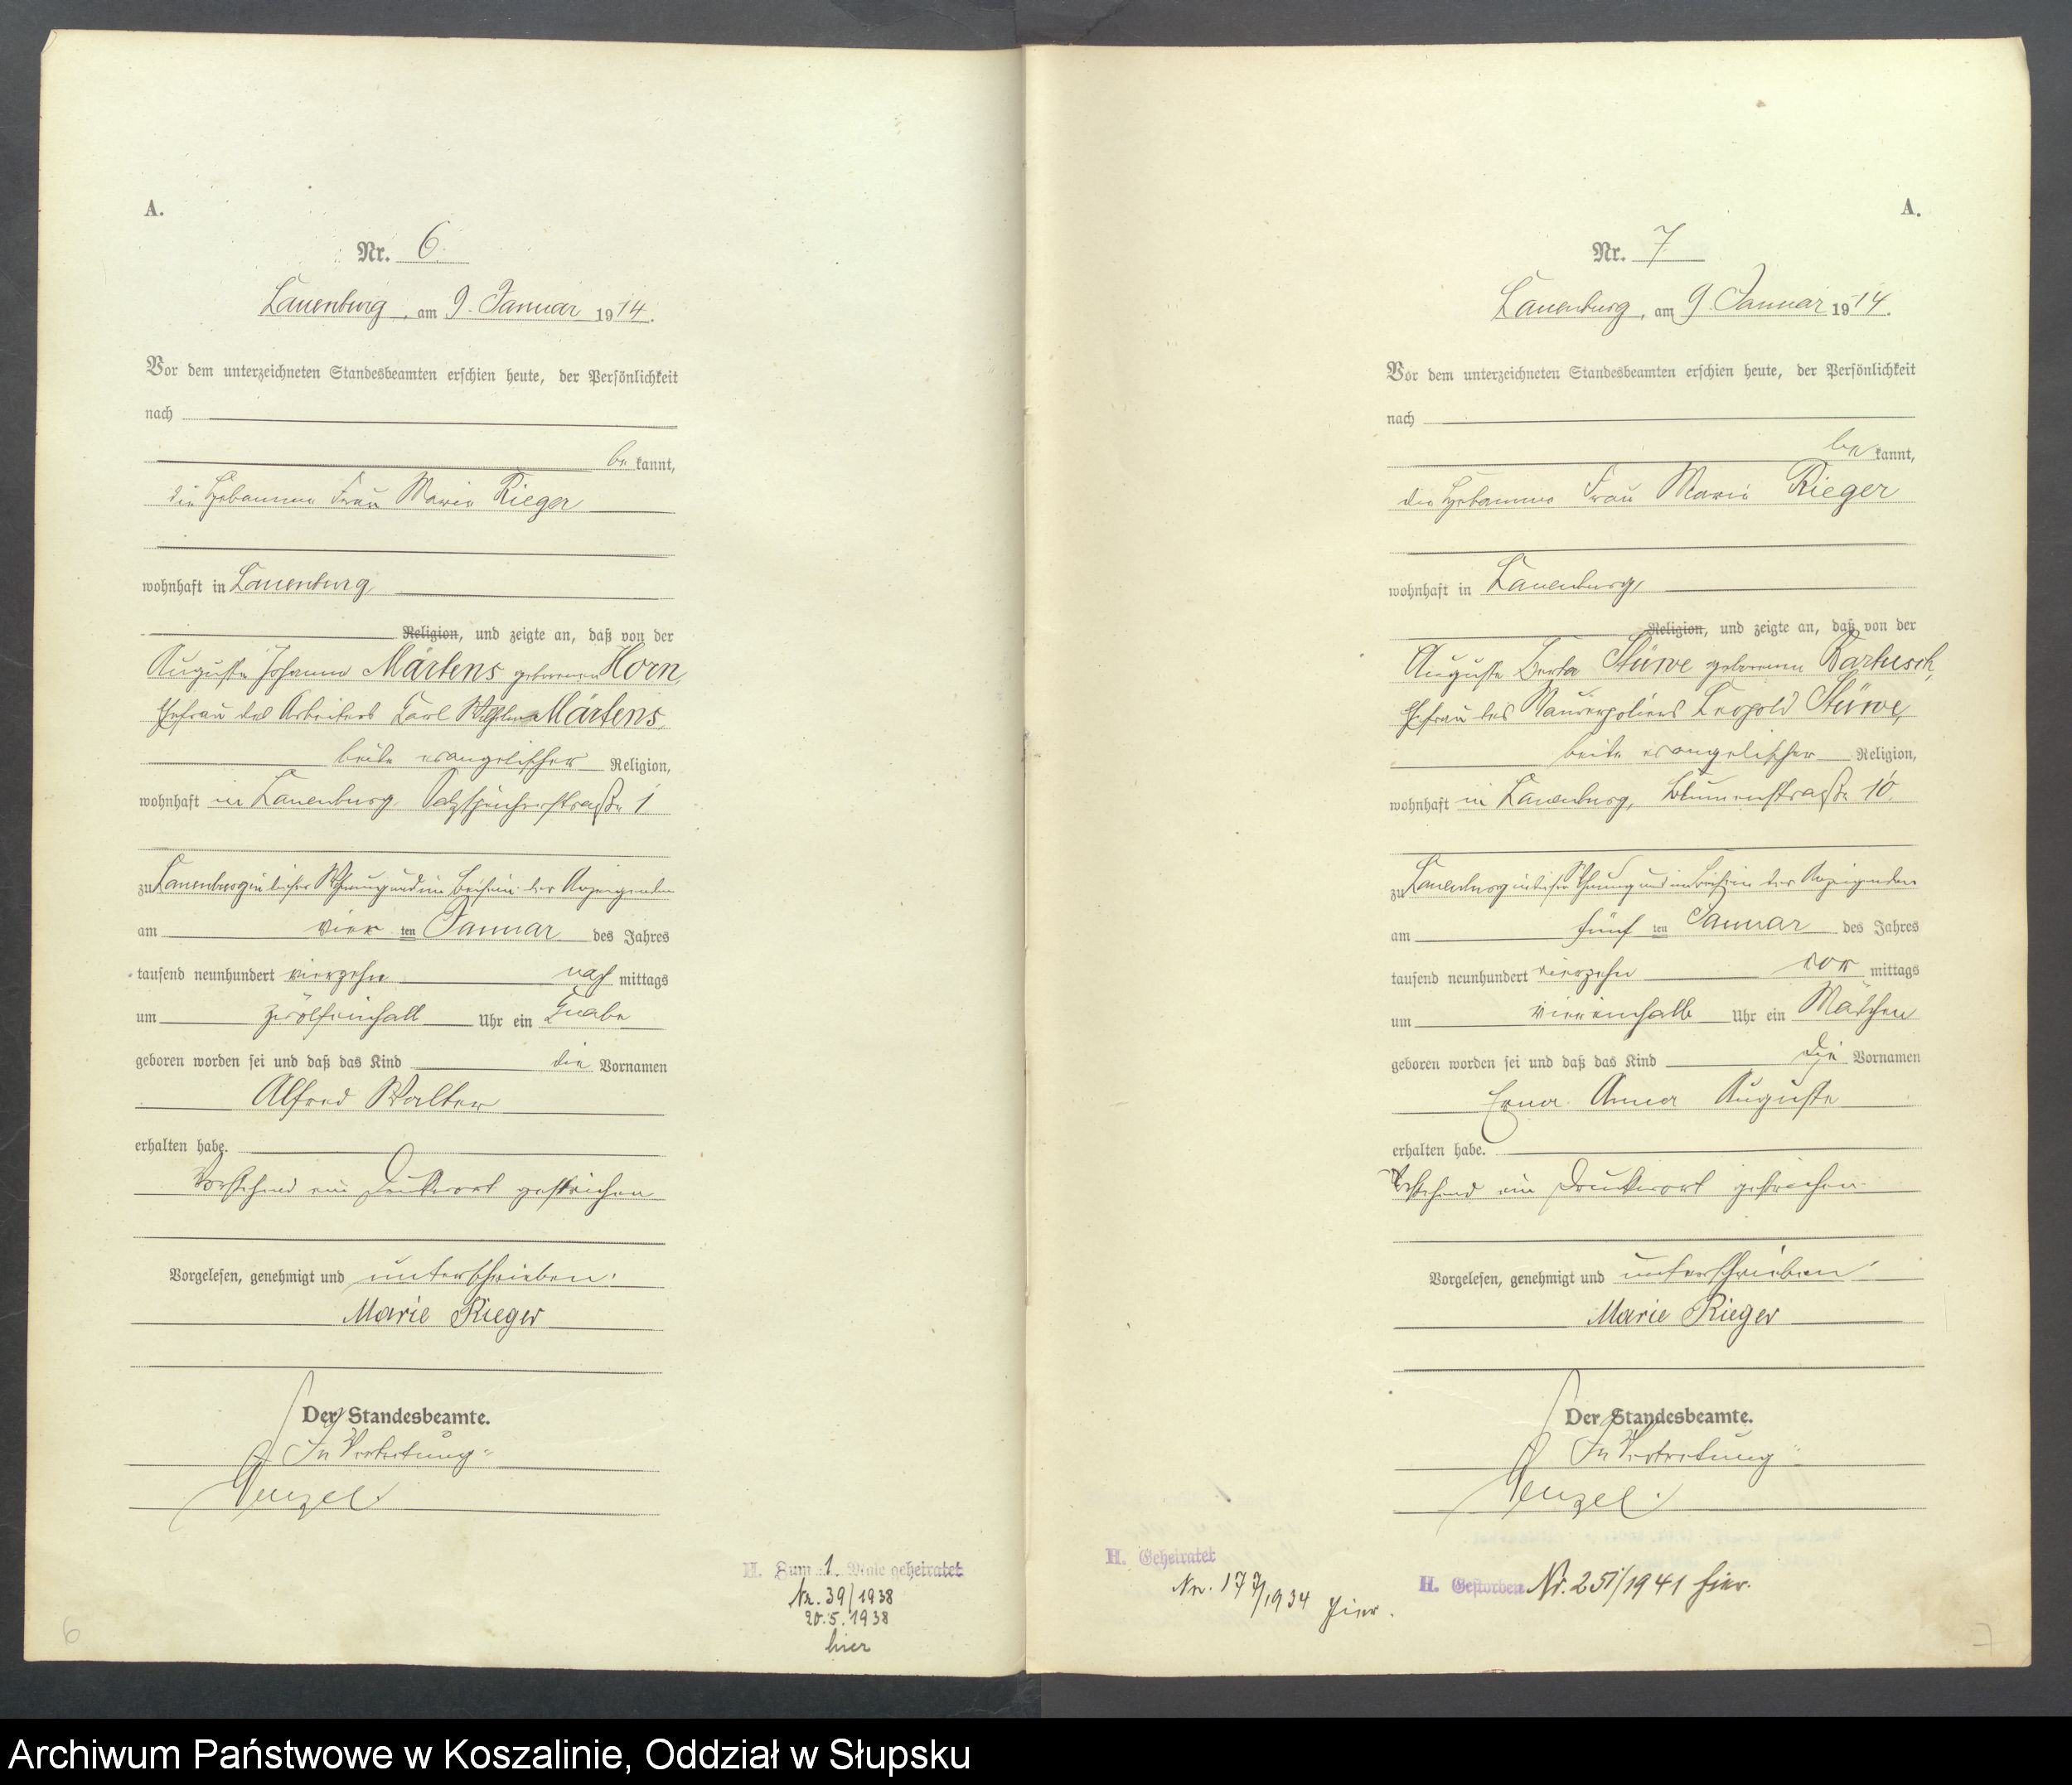 A.
Nr. 6.
Lauenburg, am 9. Januar 1914.
Vor dem unterzeichneten Standesbeamten erschien heute, der Persönlichkeit
nach
be kannt,
die Hebamme Frau Marie Rieger
wohnhaft in Lauenburg,
Religion, und zeigte an, daß von der
Auguste Johanna Märtens geborenen Horn,
Ehefrau des Arbeiters Karl Wilhelm Märtens,
beide evangelischer Religion,
wohnhaft in Lauenburg, Salzspeicherstraße 1
zu Lauenburg in dieser Wohnung und im Beisein der Anzeigenden
am vier ten Januar des Jahres
tausend neunhundert vierzehn nach mittags
um zwölfeinhalb Uhr ein Knabe
geboren worden sei und daß das Kind die Vornamen
Alfred Walter
erhalten habe.
Vorstehend ein Druckwort gestrichen
Vorgelesen, genehmigt und unterschrieben:
Marie Rieger
Der Standesbeamte.
In Vertretung:
H. Zum 1. Male geheiratet
Nr. 39/1938
20.5.1938
hier
6
A.
Nr. 7
Lauenburg, am 9. Januar 1914.
Vor dem unterzeichneten Standesbeamten erschien heute, der Persönlichkeit
nach
be kannt,
die Hebamme Frau Marie Rieger
wohnhaft in Lauenburg,
Religion, und zeigte an, daß von der
Auguste Berta Stüwe geborenen Bartusch,
Ehefrau des Maurerpoliers Leopold Stüwe,
beide evangelischer Religion,
wohnhaft in Lauenburg, Blumenstraße 10.
zu Lauenburg in dieser Wohnung und im Beisein der Anzeigenden
am fünf ten Januar des Jahres
tausend neunhundert vierzehn vor mittags
um viereinhalb Uhr ein Mädchen
geboren worden sei und daß das Kind die Vornamen
Erna Anna Auguste
erhalten habe.
Vorstehend ein Druckwort gestrichen.
Vorgelesen, genehmigt und unterschrieben:
Marie Rieger
Der Standesbeamte.
In Vertretung:
H. Geheiratet
Nr. 177/1934 hier.
H. Gestorben Nr. 251/1941 hier.
7
Archiwum Państwowe w Koszalinie, Oddział w Słupsku